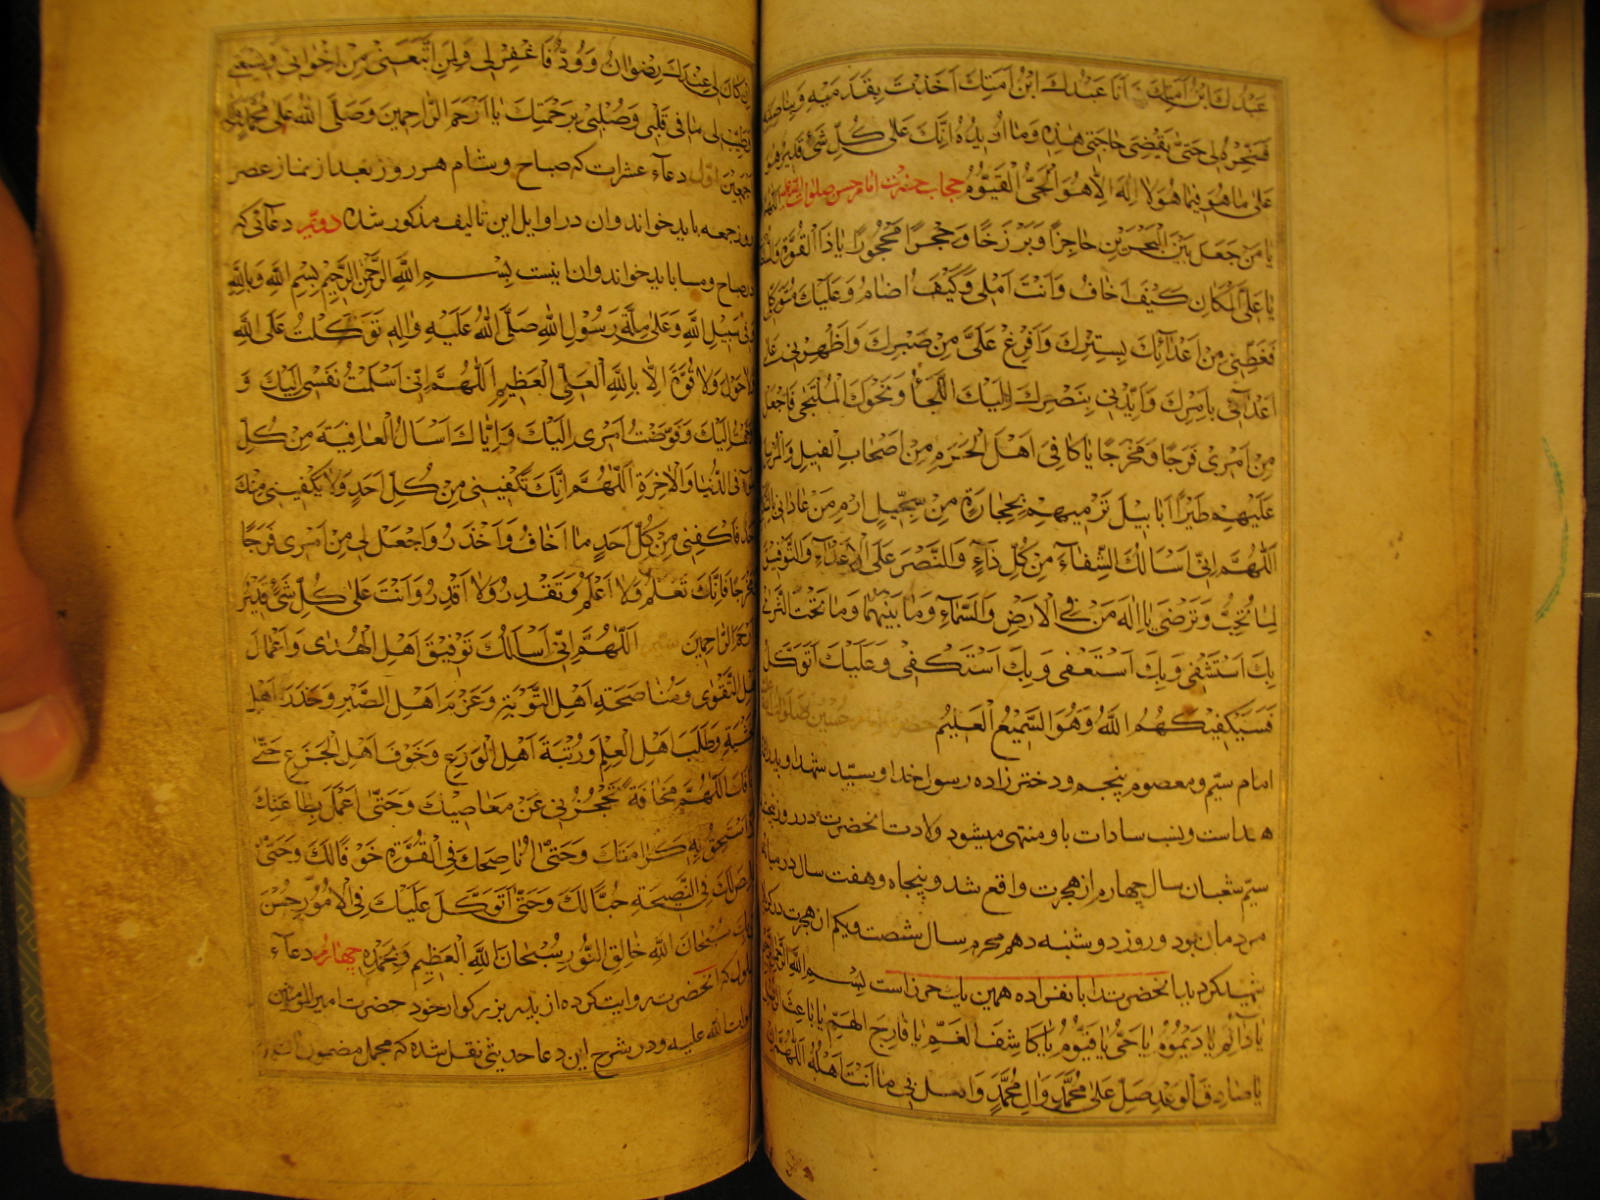 عَبْدُكَ ابْنُ اَمَتِكَ اَنَا عَبْدُكَ ابْنُ اَمَتِكَ اَخَذْتَ بِقَدَمَيْهِ وَبِنَاصِيَتِهِ
حَتّٰى يَقْضِىَ حَاجَتِى هٰذِهِ وَمَا اُرِيدُهُ اِنَّكَ عَلٰى كُلِّ شَىْءٍ قَدِيرٌ
عَلٰى مَا هُوَ فِيمَا هُوَ لَا اِلٰهَ اِلَّا هُوَ الْحَىُّ الْقَيُّومُ حجاب حضرت امام حسن صلوات
يَا مَنْ جَعَلَ بَيْنَ الْبَحْرَيْنِ حَاجِزًا وَبَرْزَخًا وَحِجْرًا مَحْجُورًا يَا ذَا الْقُوَّةِ
يَا عَلِىَّ الْمَكَانِ كَيْفَ اَخَافُ وَاَنْتَ اَمَلِى وَكَيْفَ اُضَامُ وَعَلَيْكَ مُتَّكَلِى
فَغَطِّنِى مِنْ اَعْدَائِكَ بِسِتْرِكَ وَاَفْرِغْ عَلَىَّ مِنْ صَبْرِكَ وَاَظْهِرْنِى عَلٰى
اَعْدَائِى بِاَمْرِكَ وَاَيِّدْنِى بِنَصْرِكَ اِلَيْكَ اللَّجَأُ وَنَحْوَكَ الْمُلْتَجٰى فَاجْعَلْ
مِنْ اَمْرِى فَرَجًا وَمَخْرَجًا يَا كَافِىَ اَهْلِ الْحَرَمِ مِنْ اَصْحَابِ الْفِيلِ وَالْمُرْسِلَ
عَلَيْهِمْ طَيْرًا اَبَابِيلَ تَرْمِيهِمْ بِحِجَارَةٍ مِنْ سِجِّيلٍ اِرْمِ مَنْ عَادَانِى
اَللّٰهُمَّ اِنِّى اَسْاَلُكَ الشِّفَاءَ مِنْ كُلِّ دَاءٍ وَالنَّصْرَ عَلَى الْاَعْدَاءِ وَالتَّوْفِيقَ
لِمَا تُحِبُّ وَتَرْضٰى يَا اِلٰهَ مَنْ فِى الْاَرْضِ وَالسَّمَاءِ وَمَا بَيْنَهُمَا وَمَا تَحْتَ الثَّرٰى
بِكَ اَسْتَشْفِى وَبِكَ اَسْتَعْفِى وَبِكَ اَسْتَكْفِى وَعَلَيْكَ اَتَوَكَّلُ
فَسَيَكْفِيكَهُمُ اللّٰهُ وَهُوَ السَّمِيعُ الْعَلِيمُ حضرت امام حسين صلوات
امام سيّم و معصوم پنجم و دختر زاده رسول خدا و سيّد شهدا
است و نسب سادات باو منتهى ميشود ولادت انحضرت در روز
سيّم شعبان سال چهارم از هجرت واقع شد و پنجاه و هفت سال در ميان
مردمان بود و روز دوشنبه دهم محرم سال شصت و يكم از هجرت
شهيد كرديد با انحضرت همين يك حرز است بِسْمِ اللّٰهِ
يَا دَائِمُ يَا دَيْمُومُ يَا حَىُّ يَا قَيُّومُ يَا كَاشِفَ الْغَمِّ يَا فَارِجَ الْهَمِّ يَا بَاعِثَ
يَا صَادِقَ الْوَعْدِ صَلِّ عَلٰى مُحَمَّدٍ وَآلِ مُحَمَّدٍ وَافْعَلْ بِى مَا اَنْتَ اَهْلُهُ اَللّٰهُمَّ
اِنْ كَانَ لِى عِنْدَكَ رِضْوَانٌ وَوُدٌّ فَاغْفِرْ لِى وَلِمَنِ اتَّبَعَنِى مِنْ اِخْوَانِى وَشِيعَتِى
وَطَيِّبْ لِى مَا فِى قَلْبِى وَصُلْبِى بِرَحْمَتِكَ يَا اَرْحَمَ الرَّاحِمِينَ وَصَلَّى اللّٰهُ عَلٰى مُحَمَّدٍ وَآلِهِ
اَجْمَعِينَ اوّل دعاء عشرات كه صباح و شام هر روز و بعد از نماز عصر
روز جمعه بايد خواند و ان در اوايل اين تاليف مذكور شده دويّم دعائى كه
در صباح و مسا بايد خواند و ان اينست بِسْمِ اللّٰهِ الرَّحْمٰنِ الرَّحِيمِ بِسْمِ اللّٰهِ وَبِاللّٰهِ
وَفِى سَبِيلِ اللّٰهِ وَعَلٰى مِلَّةِ رَسُولِ اللّٰهِ صَلَّى اللّٰهُ عَلَيْهِ وَاٰلِهِ تَوَكَّلْتُ عَلَى اللّٰهِ
وَلَا حَوْلَ وَلَا قُوَّةَ اِلَّا بِاللّٰهِ الْعَلِىِّ الْعَظِيمِ اَللّٰهُمَّ اِنِّى اَسْلَمْتُ نَفْسِى اِلَيْكَ وَ
اِلَيْكَ وَفَوَّضْتُ اَمْرِى اِلَيْكَ وَاِيَّاكَ اَسْاَلُ الْعَافِيَةَ مِنْ كُلِّ
سُوءٍ فِى الدُّنْيَا وَالْاٰخِرَةِ اَللّٰهُمَّ اِنَّكَ تَكْفِينِى مِنْ كُلِّ اَحَدٍ وَلَا يَكْفِينِى مِنْكَ
اَحَدٌ فَاكْفِنِى مِنْ كُلِّ اَحَدٍ مَا اَخَافُ وَاَحْذَرُ وَاجْعَلْ لِى مِنْ اَمْرِى فَرَجًا
وَمَخْرَجًا فَاِنَّكَ تَعْلَمُ وَلَا اَعْلَمُ وَتَقْدِرُ وَلَا اَقْدِرُ وَاَنْتَ عَلٰى كُلِّ شَىْءٍ قَدِيرٌ
اَرْحَمَ الرَّاحِمِينَ سيّم اَللّٰهُمَّ اِنِّى اَسْاَلُكَ تَوْفِيقَ اَهْلِ الْهُدٰى وَاَعْمَالَ
اَهْلِ التَّقْوٰى وَمُنَاصَحَةَ اَهْلِ التَّوْبَةِ وَعَزْمَ اَهْلِ الصَّبْرِ وَحَذَرَ اَهْلِ
الْخَشْيَةِ وَطَلَبَ اَهْلِ الْعِلْمِ وَرُتْبَةَ اَهْلِ الْوَرَعِ وَخَوْفَ اَهْلِ الْجَزَعِ حَتّٰى
اَخَافَكَ اَللّٰهُمَّ مَخَافَةً تَحْجُزُنِى عَنْ مَعَاصِيكَ وَحَتّٰى اَعْمَلَ بِطَاعَتِكَ
اَسْتَحِقُّ بِهِ كَرَامَتَكَ وَحَتّٰى اُنَاصِحَكَ فِى التَّوْبَةِ خَوْفًا لَكَ وَحَتّٰى
اُخْلِصَ لَكَ فِى النَّصِيحَةِ حُبًّا لَكَ وَحَتّٰى اَتَوَكَّلَ عَلَيْكَ فِى الْاُمُورِ حُسْنَ
سُبْحَانَ اللّٰهِ خَالِقِ النُّورِ سُبْحَانَ اللّٰهِ الْعَظِيمِ وَبِحَمْدِهِ چهارم دعاء
كه انحضرت روايت كرده از پدر بزركوار خود حضرت امير المؤمنين
صلوات الله عليه و در شرح اين دعا حديثى نقل شده كه مجمل مضمون